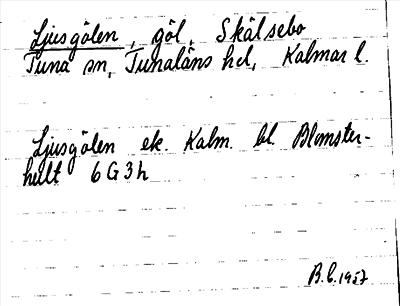 Ljusgölen, göl, Skälsebo
Tuna sn, Tunaläns hd, Kalmar l.
Ljusgölen ek. Kalm. bl. Blomster-
hult 6G3h
B.E. 1957